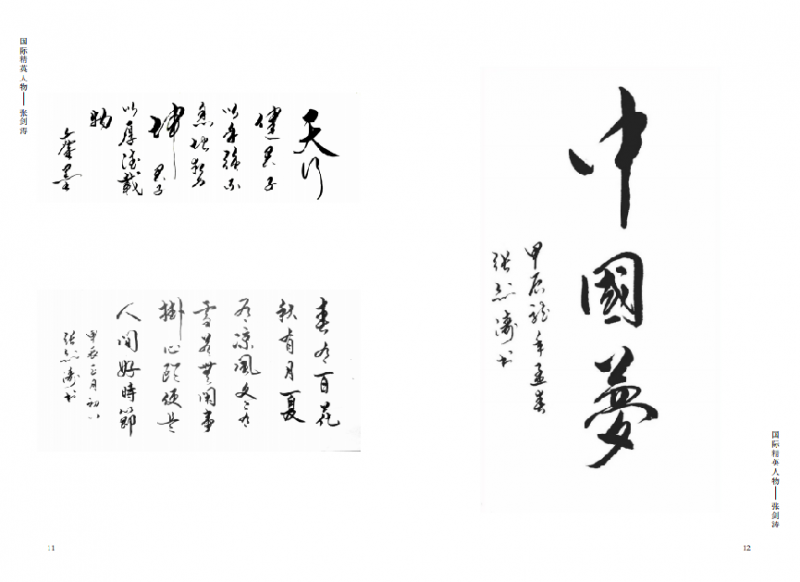 国际精英人物——张剑涛
天行
健君子
以自强不
息地势
坤君子
以厚德载
物
春有百花
秋有月夏
有凉风冬有
雪若無閒事
掛心頭便是
人間好時節
甲辰正月初八
张剑涛书
11
中國夢
甲辰龙年孟春
张剑涛书
国际精英人物——张剑涛
12